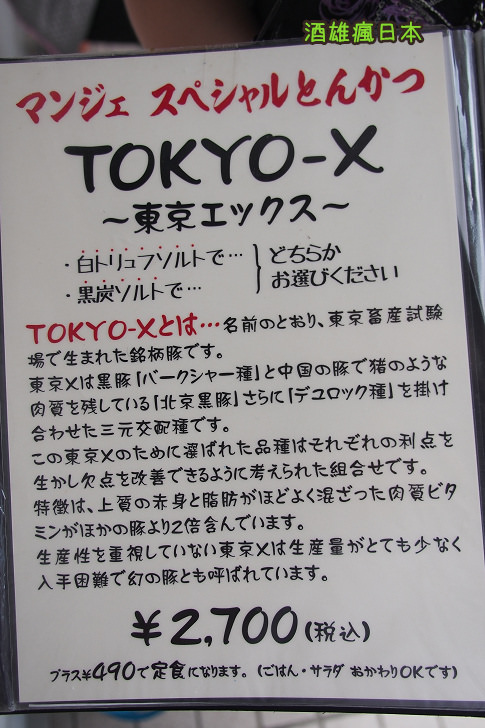 酒雄瘋日本
マンジェ スペシャルとんかつ
TOKYO-X
～東京エックス～
・白トリュフソルトで…
・黒炭ソルトで…
どちらか
お選びください
TOKYO-Xとは…名前のとおり、東京畜産試験
場で生まれた銘柄豚です。
東京Xは黒豚「バークシャー種」と中国の豚で猪のような
肉質を残している「北京黒豚」さらに「デュロック種」を掛け
合わせた三元交配種です。
この東京Xのために選ばれた品種はそれぞれの利点を
生かし欠点を改善できるように考えられた組合せです。
特徴は、上質の赤身と脂肪がほどよく混ざった肉質ビタ
ミンがほかの豚より2倍含んでいます。
生産性を重視していない東京Xは生産量がとても少なく
入手困難で幻の豚とも呼ばれています。
￥2,700(税込)
プラス￥490で定食になります。(ごはん・サラダ おかわりOKです)